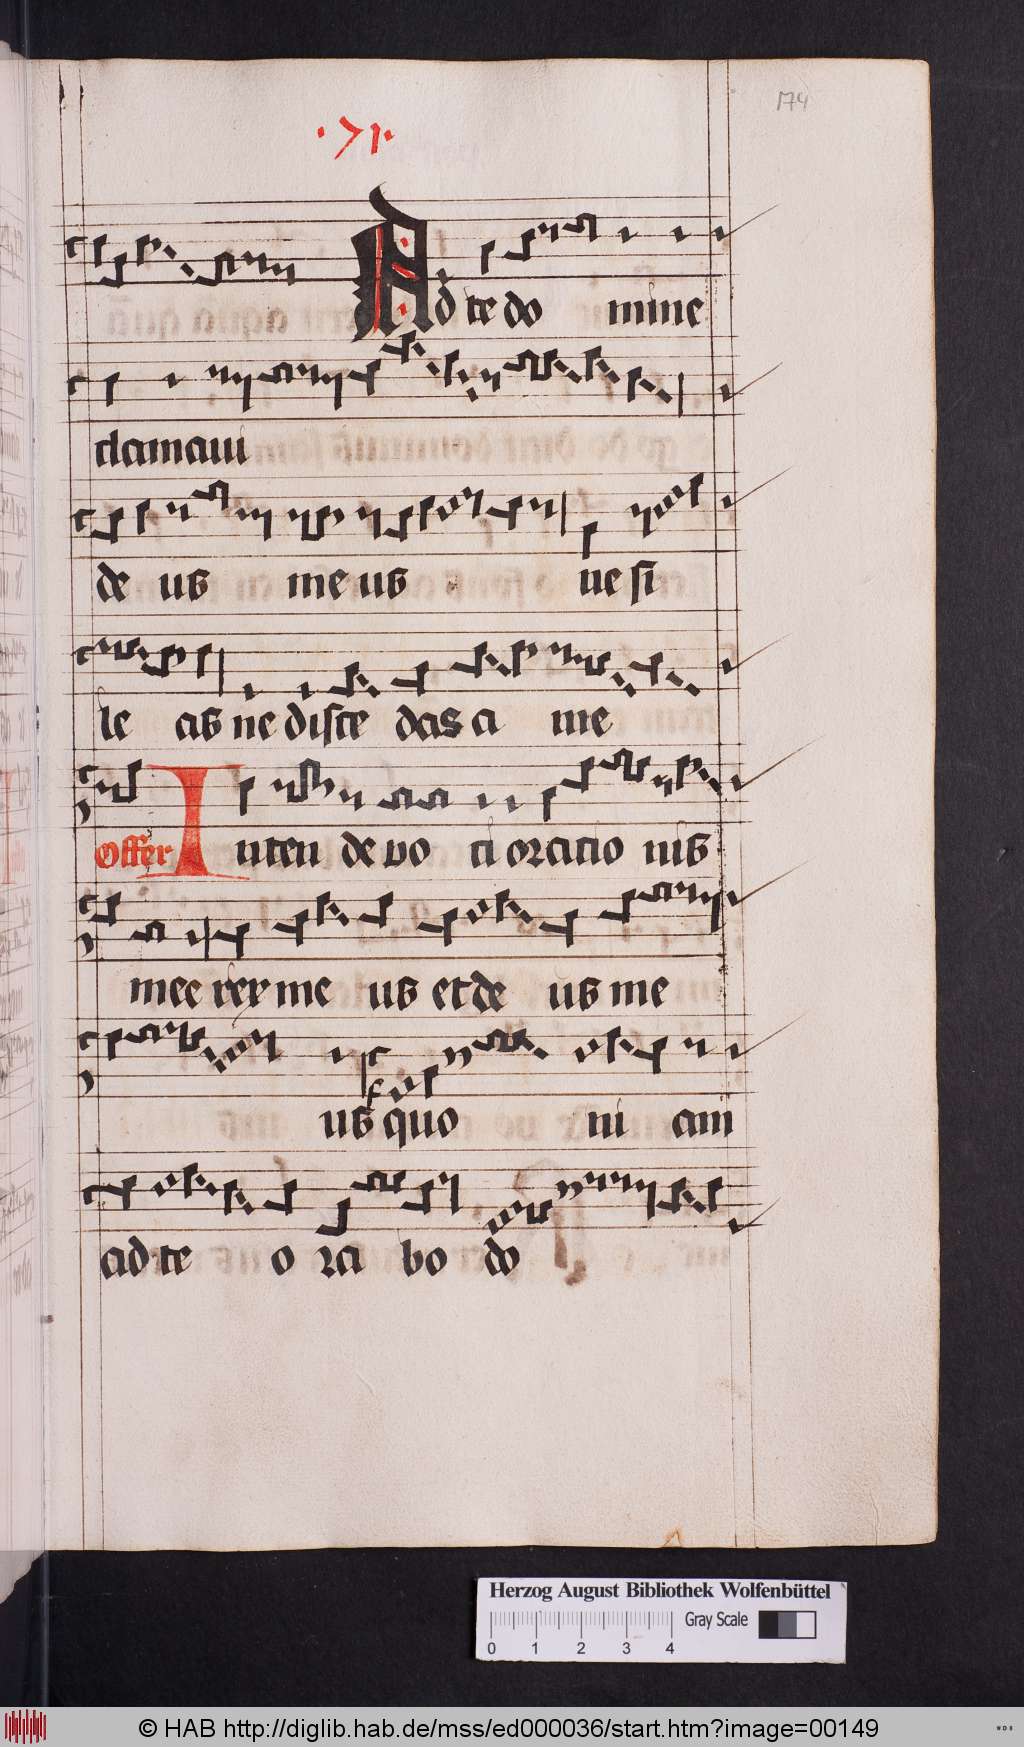 174
·71·
Ad te do mine
clamaui
de us me us ne si
le as ne disce das a me
Offer Inten de vo ci oracio nis
mee rex me us et de us me
us quo ni am
ad te o ra bo do
Herzog August Bibliothek Wolfenbüttel
Gray Scale
0 1 2 3 4
© HAB http://diglib.hab.de/mss/ed000036/start.htm?image=00149
WDB